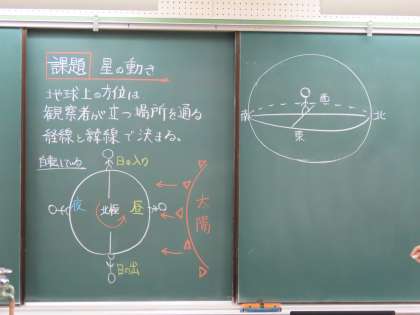 課題 星の動き
地球上の方位は
観察者が立つ場所を通る
経線と緯線で決まる。
自転している
日の入り
夜
北極
昼
太陽
日の出
西
南
北
東